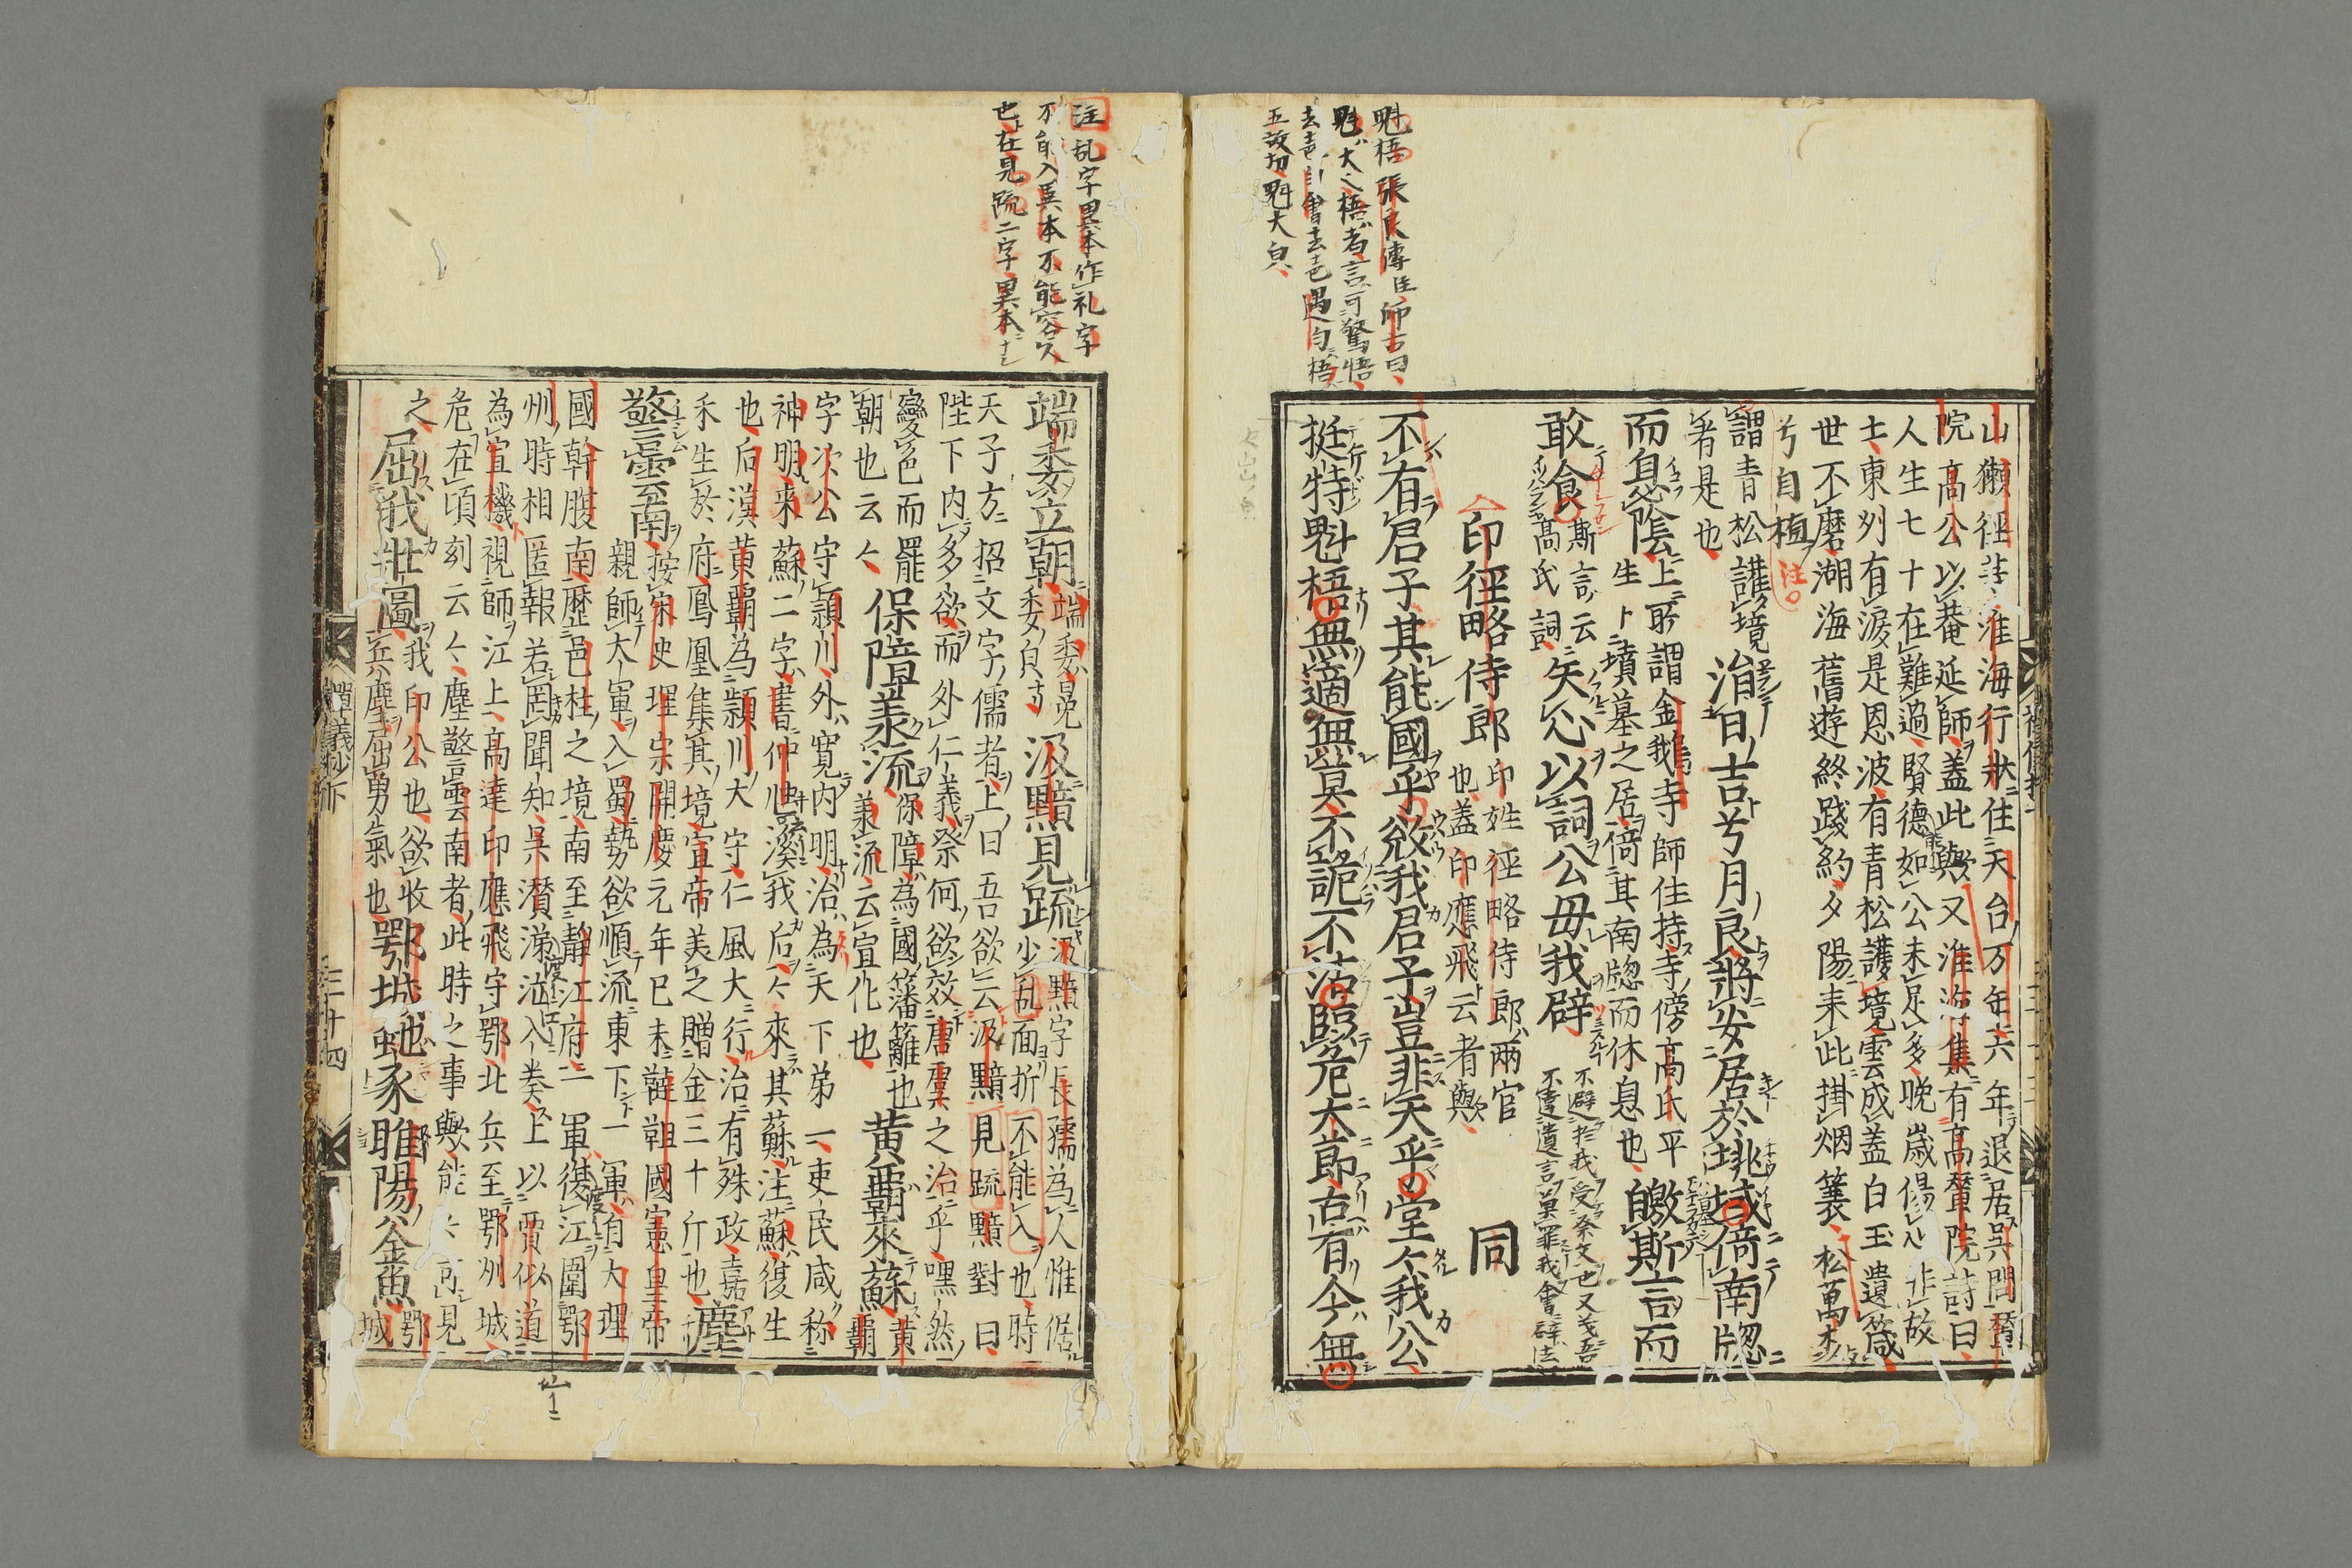 魁梧張良傳注師古曰
魁大之梧者言可驚悟
去声
五故切魁大皃
山獺徑 淮海行状住天台万年六年退居呉門賛
院高公以菴延師蓋此與又淮海集有高賛院詩曰
人生七十在難過賢德如公未足多晩歳傷 非故
士東州有淚是恩波有青松護境雲成蓋白玉遺箴
世不磨湖海舊遊終踐約夕陽来此掛烟簑松萬木
兮自植注
謂青松護境治日吉兮月良將安居於垗域倚南牕
者是也
而息陰上所謂金鵝寺師住持寺傍高氏平
生卜墳墓之居倚其南牕而休息也皦斯言而
敢食斯言云
高氏詞矢心以詞公毋我辟不避於我受祭文也又 吾
不違遺言莫罪我會辟法
印徑略侍郎印姓徑略侍郎兩官
也蓋印應飛云者與 同
不有君子其能國乎欲我君子豈非天乎堂々我公
挺特魁梧無適無莫不詭不沽臨危大節古有今無
注乱字異本作礼字
不能入異本不能容人
也在見疏二字異本
端委立朝端委冕
委皃汲黯見疏汲黯字長孺為人惟倨
少乱面折不能入也時
天子方招文字儒者上曰吾欲云汲黯見疏黯對曰
陛下内多欲而外仁義祭何欲效唐虞之治乎嘿然
變色而罷
朝也云々保障羕流保障為國藩籬也
羕流云宣化也黄覇來蘇黄
覇
字次公守頴川外寛内明治為天下苐一吏民咸称
神明来蘇二字書仲虺
溪我后々來其蘇注蘇復生
也后漢黄覇為頴川大守仁風大行治有殊政嘉
禾生於府鳳凰集其境宣帝美之贈金三十斤也塵
警雲南按宋史理宗開慶元年己未韃靼國憲皇帝
親師大軍入蜀勢欲順流東下一軍自大理
國幹腹南歴邕桂之境南至靜江府一軍復江圍鄂
州時相匿報若罔聞知呉潜涕泣入奏上以賈似道
為宣機視師江上高達印應飛守鄂北兵至鄂州城
危在頃刻云々塵警雲南者此時之事與能 可見
之屈我壮圖我印公也欲收
兵塵屈勇氣也鄂城虵豕睢陽釡魚鄂
城
禪義抄下
三十四